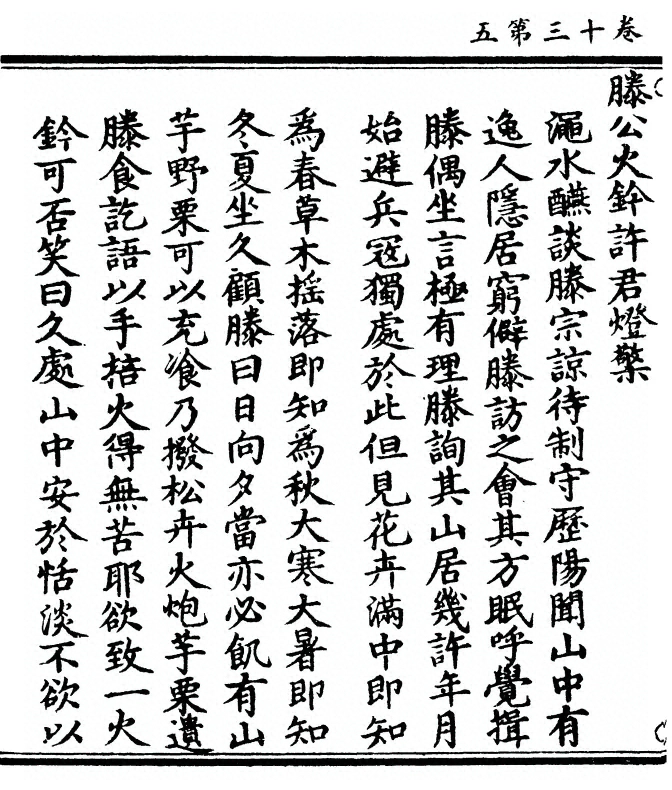 卷十三第五
滕公火鈐許君燈檠
澠水醼談滕宗諒待制守歷陽聞山中有
逸人隱居窮僻滕訪之會其方眠呼覺揖
滕偶坐言極有理滕詢其山居幾許年月
始避兵冦獨處於此但見花卉滿中即知
爲春草木摇落即知爲秋大寒大暑即知
冬夏坐久顧滕曰日向夕當亦必飢有山
芋野栗可以充飡乃撥松卉火炮芋栗遺
滕食訖語以手捨火得無苦耶欲致一火
鈐可否笑曰久處山中安於恬淡不欲以